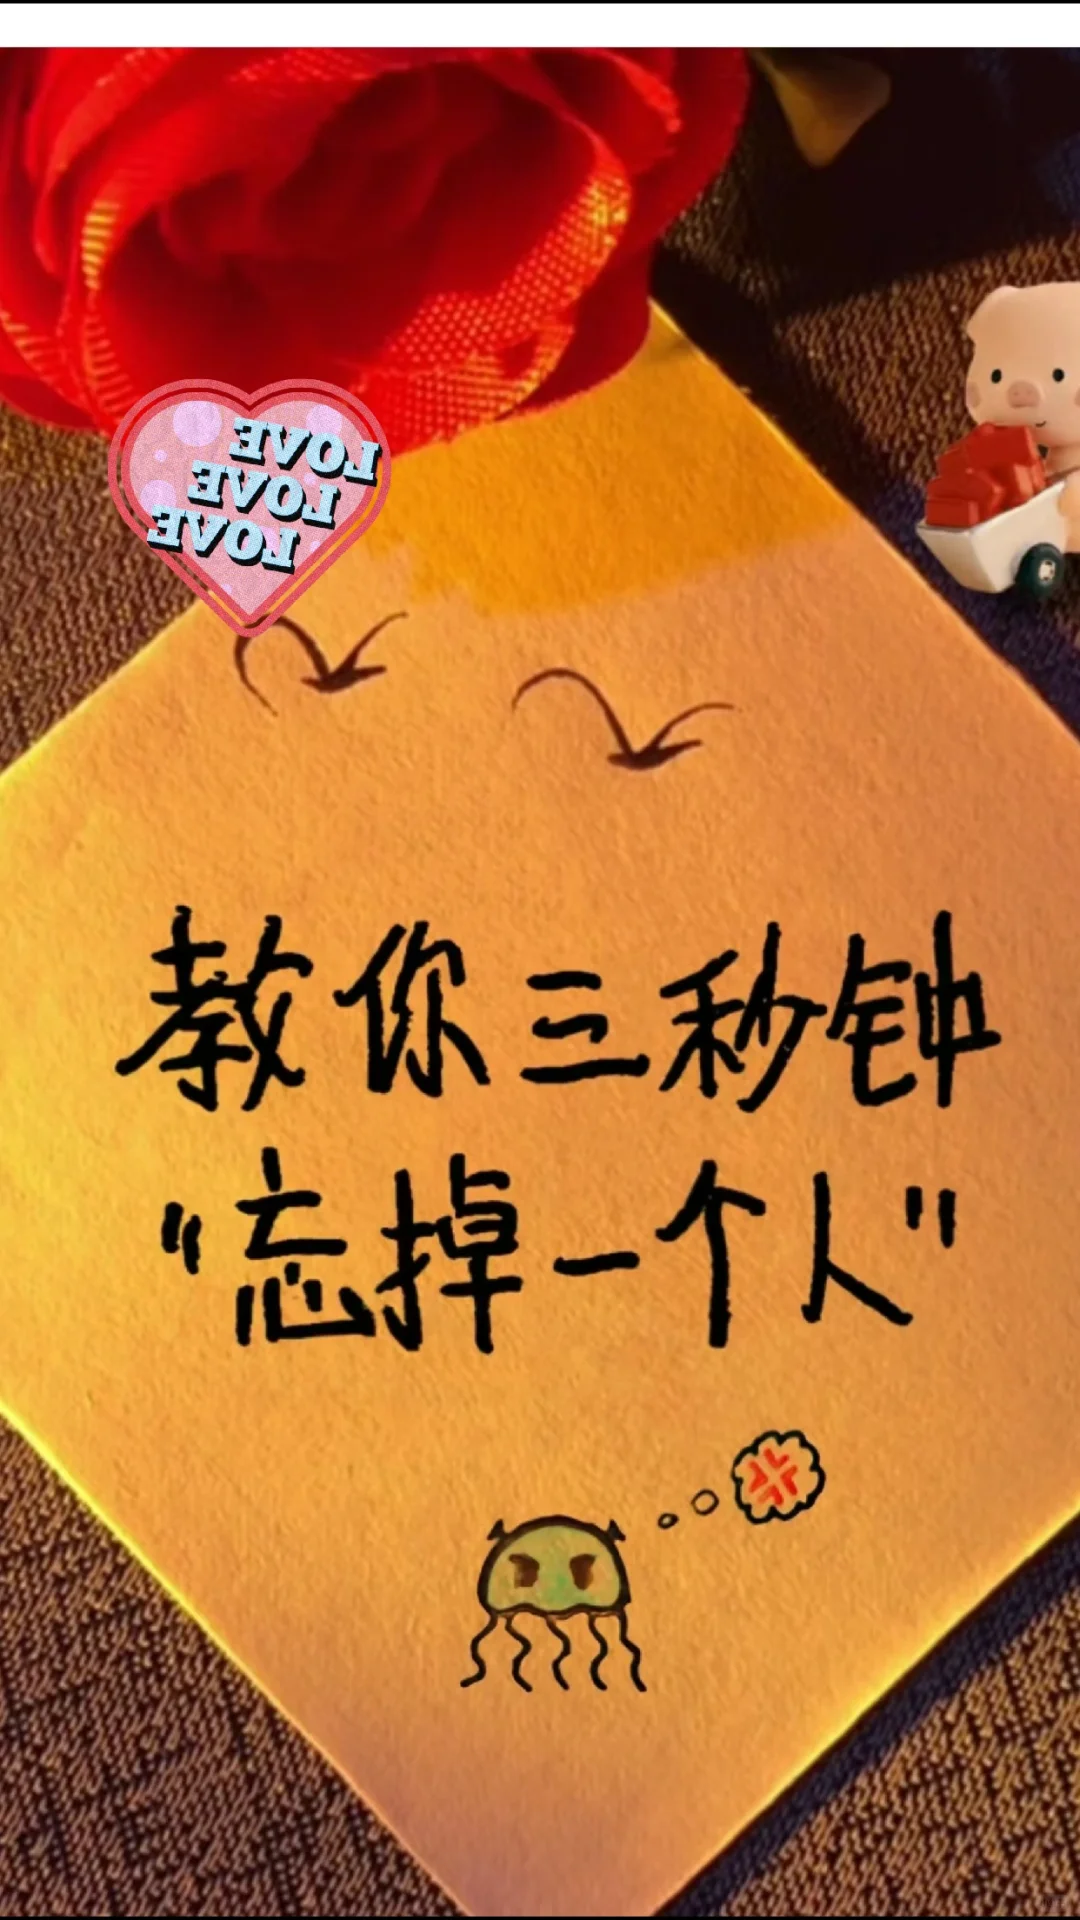 LOVE
LOVE
LOVE
教你三秒钟
"忘掉一个人"